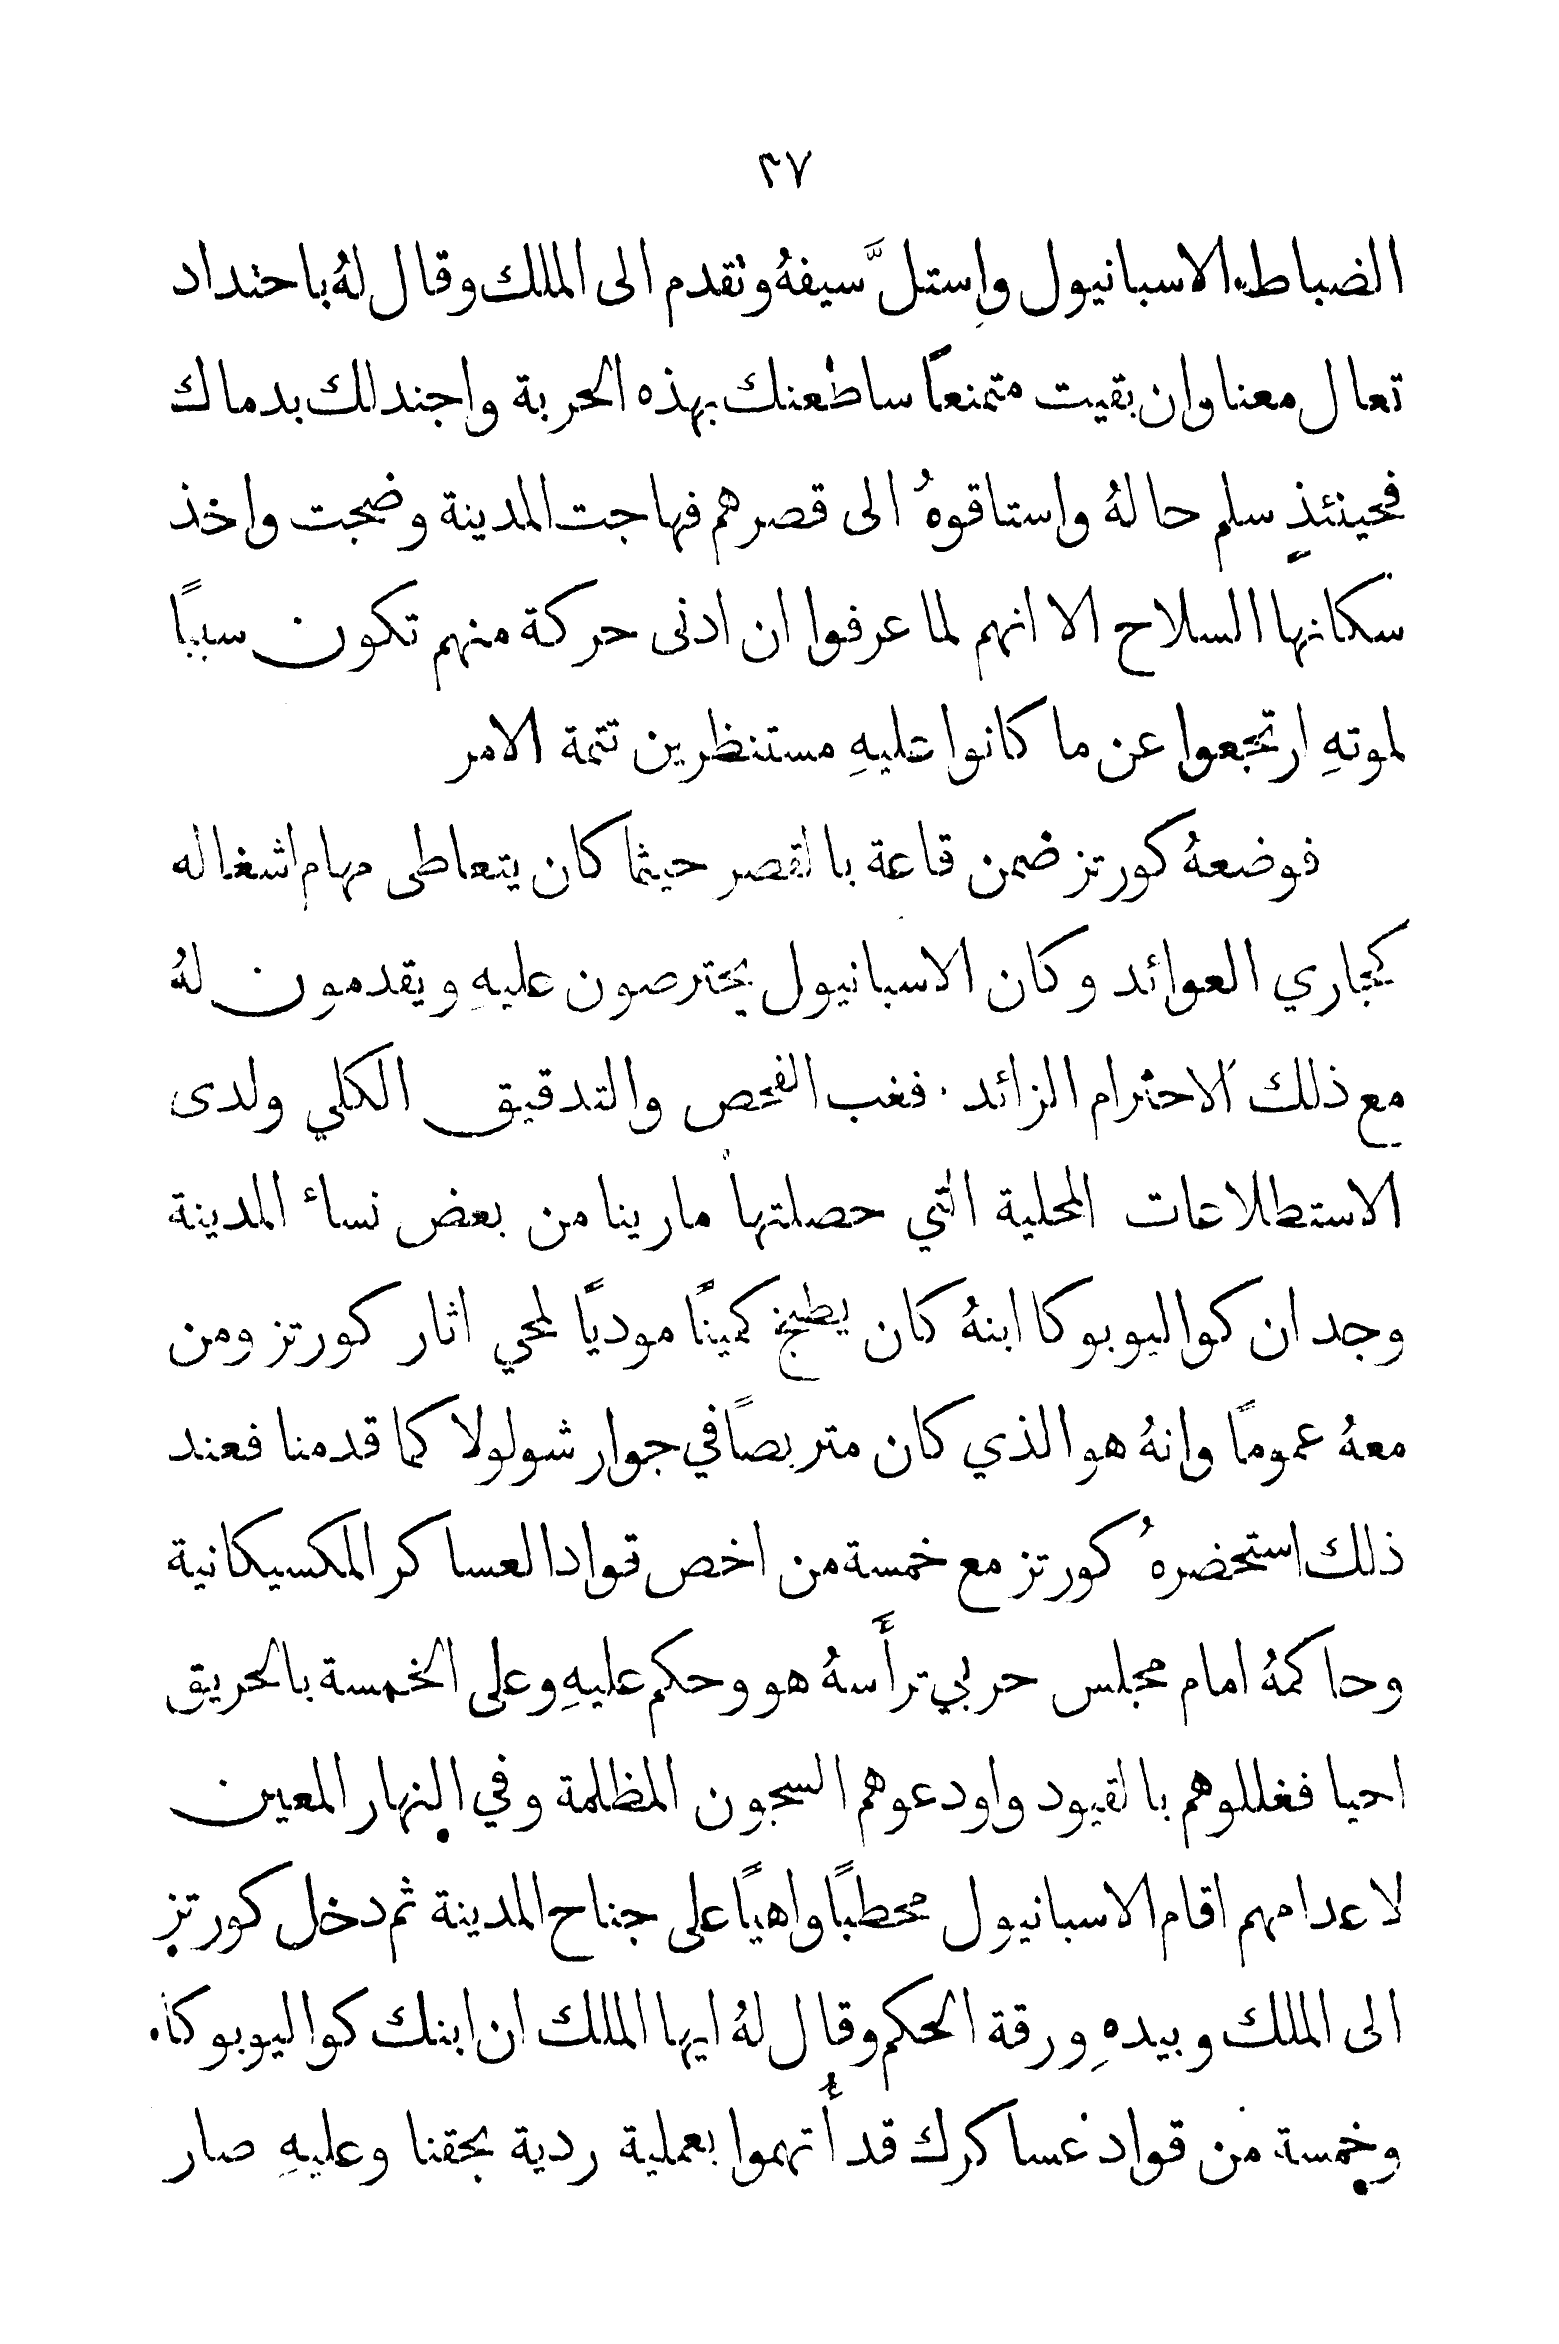 ٣٧
الضباط الاسبانيول واستلَّ سيفهُ وتقدم الى الملك وقال لهُ باحتداد
تعال معنا وان بقيت متمنعاً ساطعنك بهذه الحربة واجندلك بدماك
فحينئذٍ سلم حالهُ واستاقوهُ الى قصرهم فهاجت المدينة وضجت واخذ
سكانها السلاح الا انهم لما عرفوا ان ادنى حركة منهم تكون سبباً
لموتهِ ارتجعوا عن ما كانوا عليهِ مستنظرين تتمة الامر
فوضعهُ كورتز ضمن قاعة بالقصر حيثما كان يتعاطى مهام اشغاله
كجاري العوائد وكان الاسبانيول يحترصون عليهِ ويقدمون لهُ
مع ذلك الاحترام الزائد . فغب الفحص والتدقيق الكلي ولدى
الاستطلاعات المحلية التي حصلتها مارينا من بعض نساء المدينة
وجد ان كواليوبوكا ابنهُ كان يطبخ كميناً مودياً لمحي اثار كورتز ومن
معهُ عموماً وانهُ هو الذي كان متربصاً في جوار شولولا كما قدمنا فعند
ذلك استحضرهُ كورتز مع خمسة من اخص قواد العساكر المكسيكانية
وحاكمهُ امام مجلس حربي ترأَسهُ هو وحكم عليهِ وعلى الخمسة بالحريق
احيا فغللوهم بالقيود واودعوهم السجون المظلمة وفي النهار المعين
لاعدامهم اقام الاسبانيول محطباً واهياً على جناح المدينة ثم دخل كورتز
الى الملك وبيدهِ ورقة الحكم وقال لهُ ايها الملك ان ابنك كواليوبوكا
وخمسة من قواد عساكرك قد أُتهموا بعملية ردية بحقنا وعليهِ صار